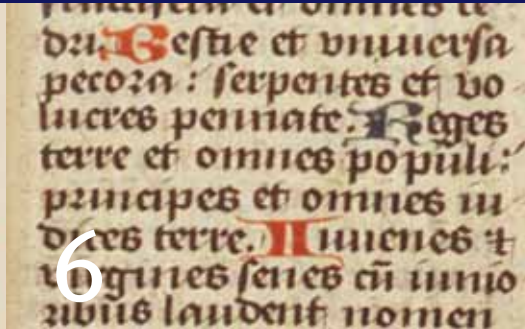 fructifera et omnes ce
dri. Bestie et vniuersa
pecora : serpentes et vo
lucres pennate. Reges
terre et omnes populi:
principes et omnes iu
dices terre. Iuuenes ⁊
virgines senes cū iunio
ribus laudent nomen
6